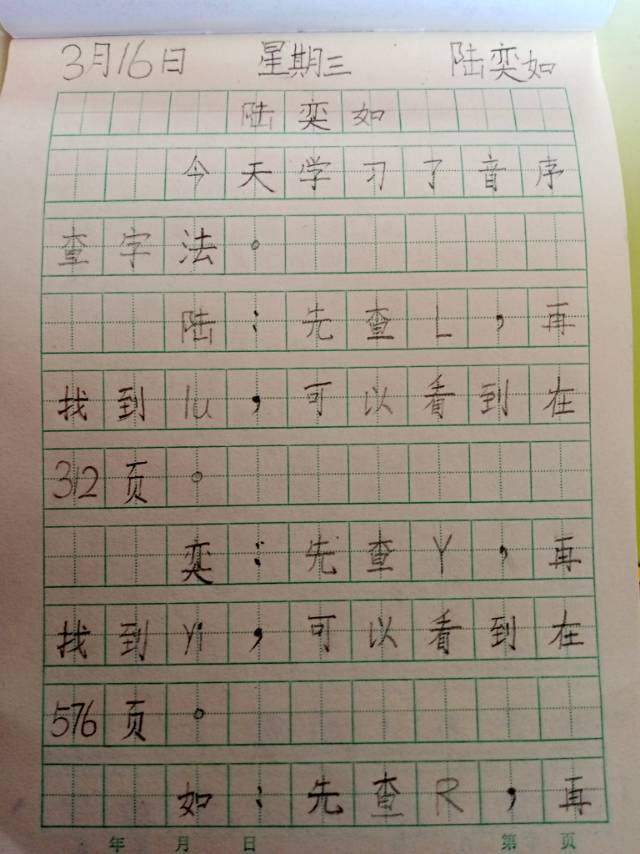 3月16日 星期三 陆奕如
陆奕如
今天学习了音序
查字法。
陆：先查L，再
找到lu，可以看到在
312页。
奕：先查Y，再
找到yi，可以看到在
576页。
如：先查R，再
年 月 日 第 页